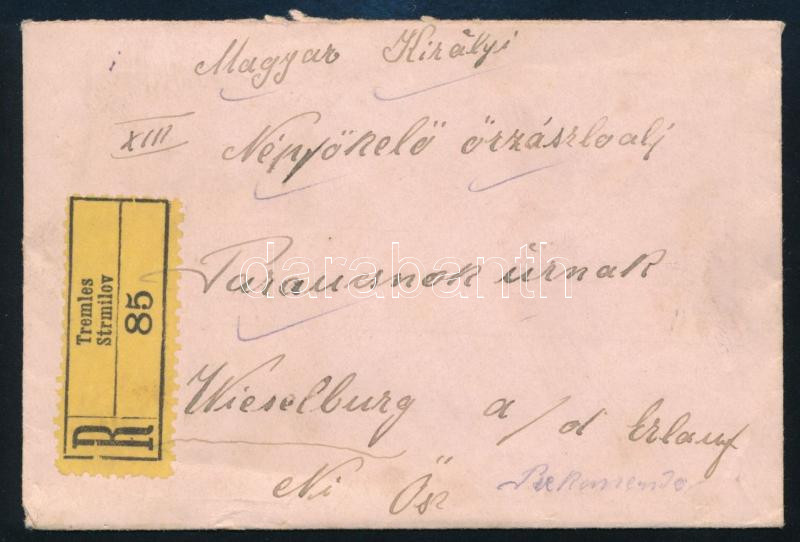 Magyar Királyi
XIII Népfökelö örzászloalj
Parancsnok úrnak
Wieselburg a/d Erlauf
Ni Ös
Tremles
Strmilov
85
R
darabanth